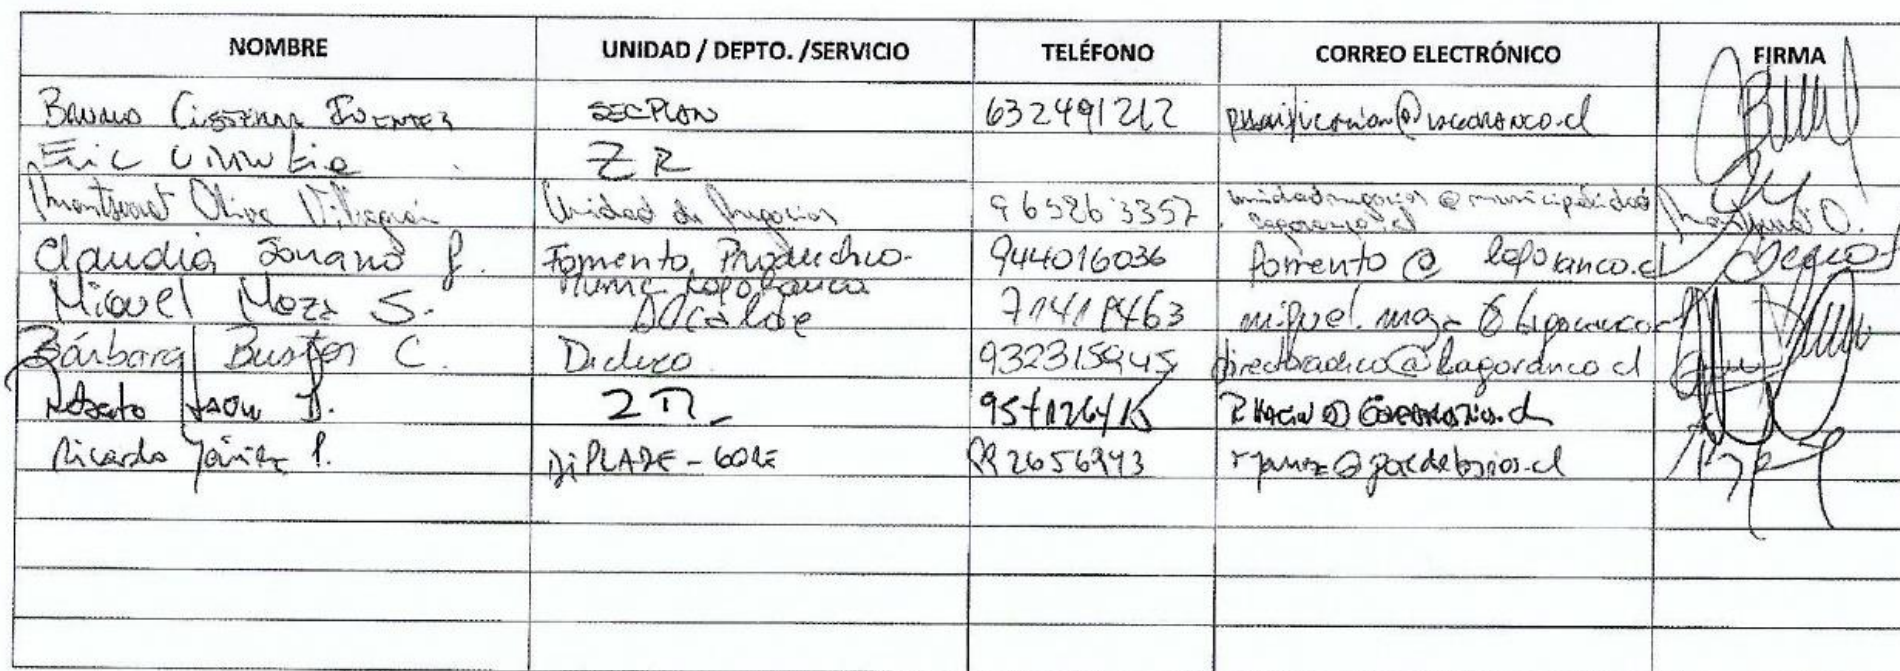 NOMBRE UNIDAD / DEPTO. /SERVICIO TELÉFONO CORREO ELECTRÓNICO FIRMA
Bruno Cisterna Fuentes SECPLAN 632491212 planificacion@lagoranco.cl
Eric ZR
Montserrat Oliva Villagrán Unidad de Negocios 965263357 unidadnegocios@municipalidad
lagoranco.cl Montserrat O.
Claudia Soriano f. Fomento Productivo 944016036 fomento@lagoranco.cl
Muni Lago Ranco
Miguel Meza S. Alcalde miguel.meza@lagoranco.cl
Bárbara Bustos C. Dideco 932315945 directoradideco@lagoranco.cl
Roberto
Ricardo Yáñez P. DIPLADE-GORE ryanez@goredelosrios.cl